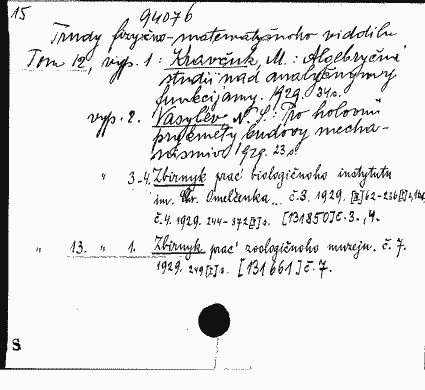 15
94076
Trudy fizyčno-matematyčnoho viddilu
Tom 12, vyp. 1: Kravčuk, M.: Algebryčni
studii nad analytyčnymy
funkcijamy. 1929. 34 s.
vyp. 2. Vasylev N. S.: Pro holovni
prykmety budovy mecha-
nismiv. 1929. 23 s.
" 3-4. Zbirnyk prac biologičnoho instytutu
im. Omelčenka.. č. 3. 1929. 62-236
č. 4. 1929. 244-372[2] s. [131850] č. 3., 4.
" 13. " 1. Zbirnyk prac zoologičnoho muzeju. č. 7.
1929. 249[2] s. [131661] č. 7.
S